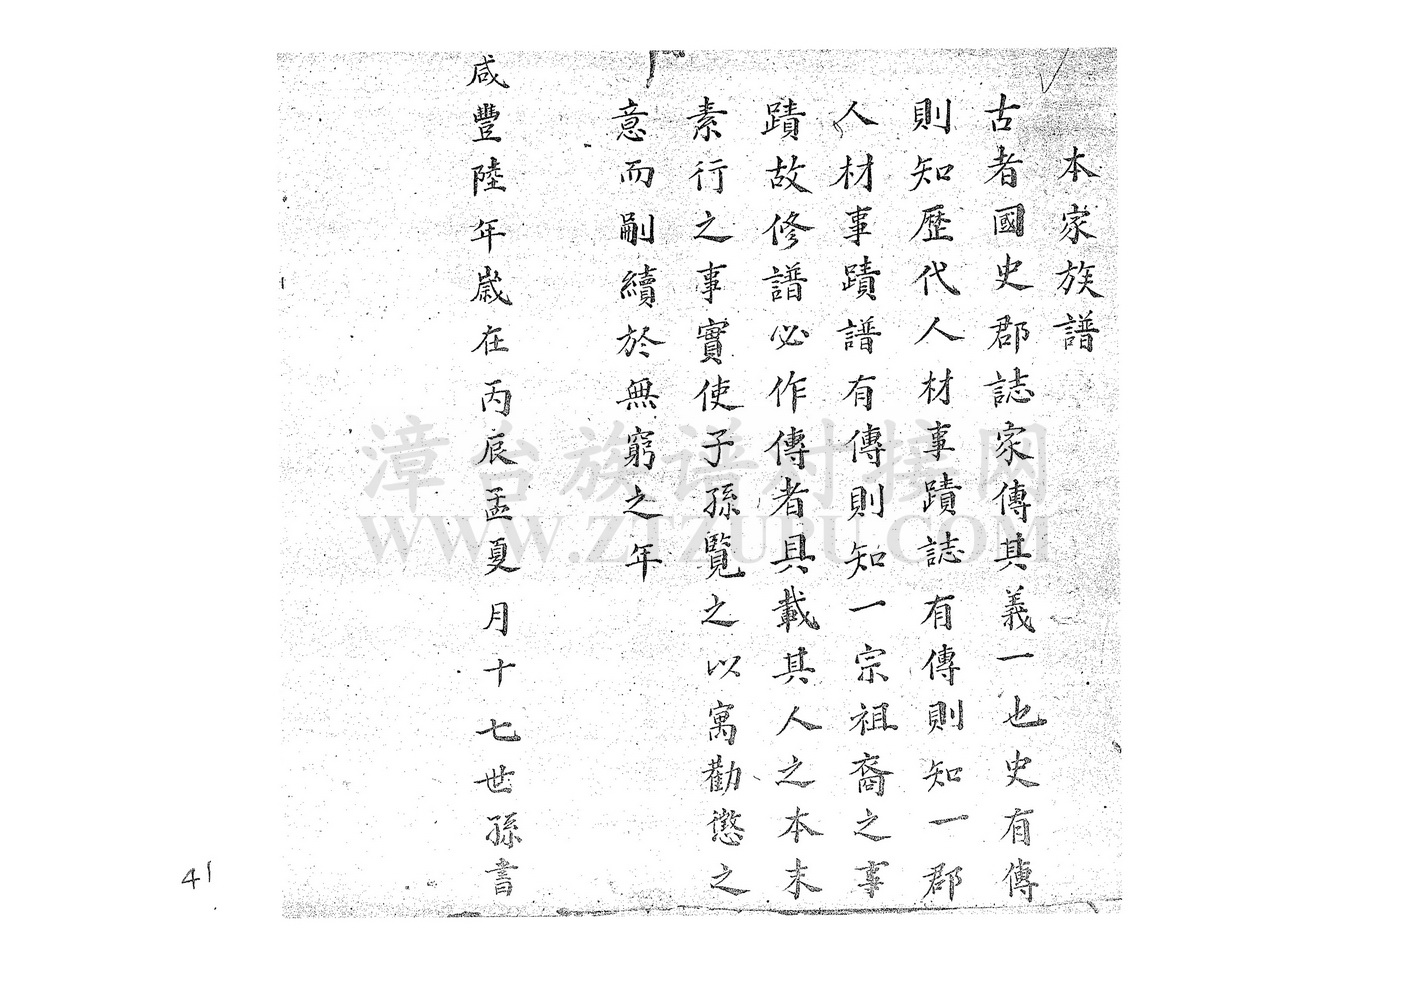 本家族譜
古者國史郡誌家傳其義一也史有傳
則知歷代人材事蹟誌有傳則知一郡
人材事蹟譜有傳則知一宗祖裔之事
蹟故修譜必作傳者具載其人之本末
素行之事實使子孫覽之以寓勸懲之
意而嗣續於無窮之年
咸豐陸年歲在丙辰孟夏月十七世孫書
漳台族谱对接网
WWW.ZTZUPU.COM
41